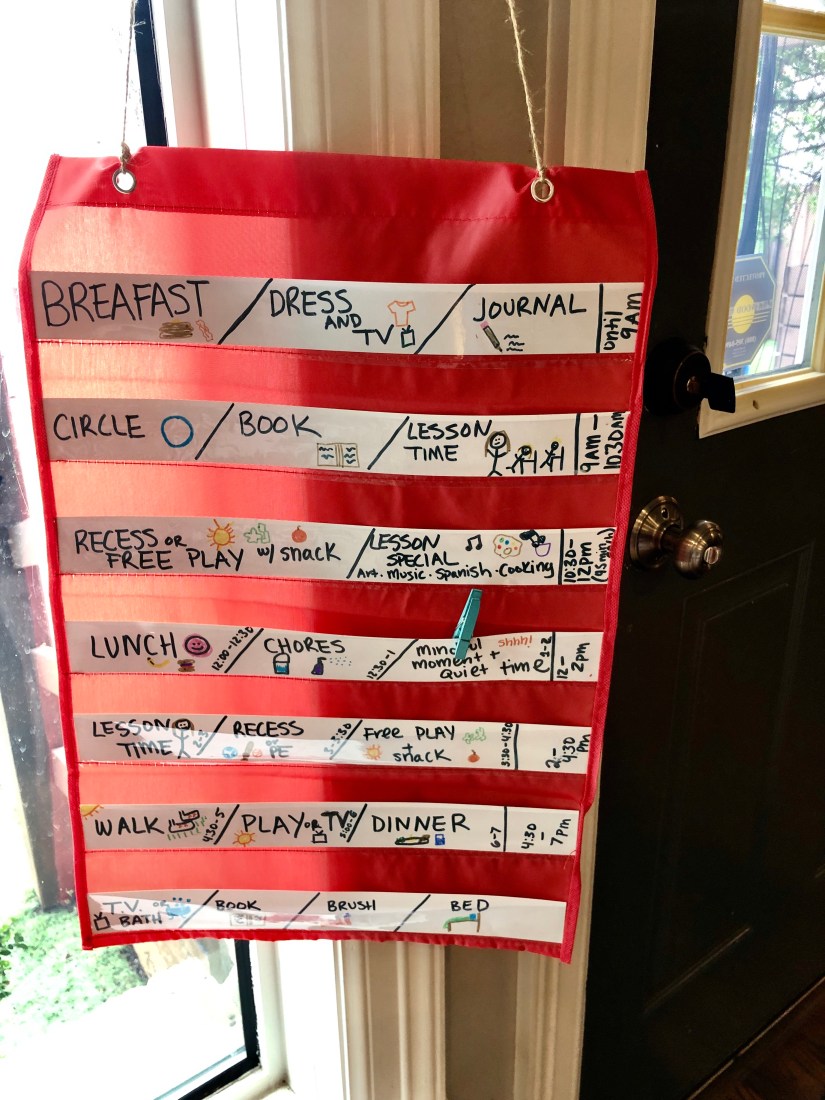 BREAFAST / DRESS AND TV / JOURNAL until 9AM
CIRCLE / BOOK / LESSON TIME 9AM – 10:30AM
RECESS or FREE PLAY w/ snack / LESSON SPECIAL Art. Music. Spanish. Cooking 10:30- 12pm (45 min)
LUNCH 12:00-12:30 / CHORES 12:30-1 / moment + Quiet time shhhh! 1-2 12- 2pm
LESSON TIME / RECESS or PE / Free PLAY + snack 3:30-4:30 2- 4:30 pm
WALK 4:30-5 / PLAY or TV 5:00-6 / DINNER 6-7 4:30 - 7pm
T.V. or BATH / BOOK / BRUSH / BED